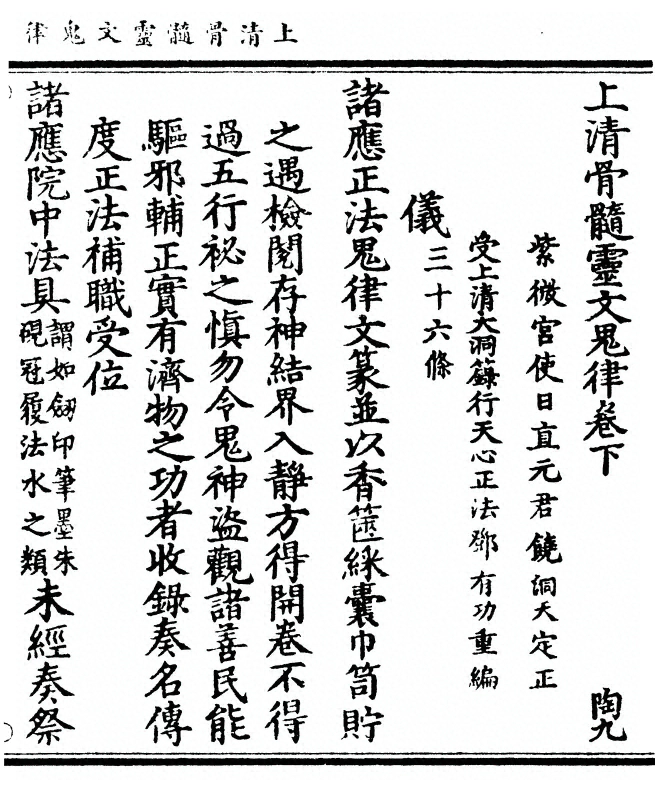 上清骨髓靈文鬼律
上清骨髓靈文鬼律卷下
陶九
紫微宮使日直元君饒洞天定正
受上清大洞籙行天心正法鄧有功重編
儀三十六條
諸應正法鬼律文篆並以香篋綵囊巾笥貯
之遇檢閱存神結界入靜方得開卷不得
過五行祕之愼勿令鬼神盜觀諸善民能
驅邪輔正實有濟物之功者收錄奏名傳
度正法補職受位
諸應院中法具謂如劒印筆墨朱硯冠履法水之類未經奏祭